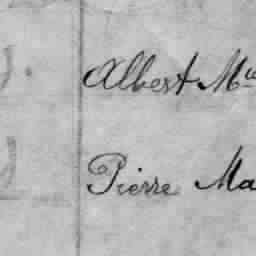 Albert Mc
Pierre Ma